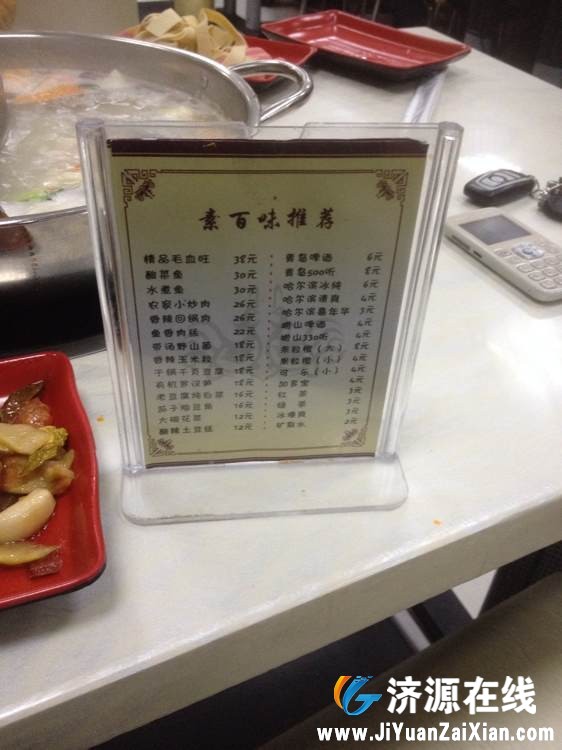 素百味推荐
精品毛血旺 38元
酸菜鱼 30元
水煮鱼 30元
农家小炒肉 26元
香辣回锅肉 26元
鱼香肉丝 22元
带汤野山菌 18元
香辣玉米粒 18元
干锅千页豆腐 18元
有机萝汉笋 18元
老豆腐炖白菜 16元
茄子焖豆角 16元
大碗花菜 12元
酸辣土豆丝 12元
青岛啤酒 6元
青岛500听 8元
哈尔滨冰纯 6元
哈尔滨清爽 4元
哈尔滨嘉年华 3元
崂山啤酒 4元
崂山330听 4元
果粒橙(大) 8元
果粒橙(小) 4元
可乐(小) 4元
加多宝 4元
红茶 3元
绿茶 3元
冰爆爽 3元
矿泉水 2元
济源在线
www.JiYuanZaiXian.com